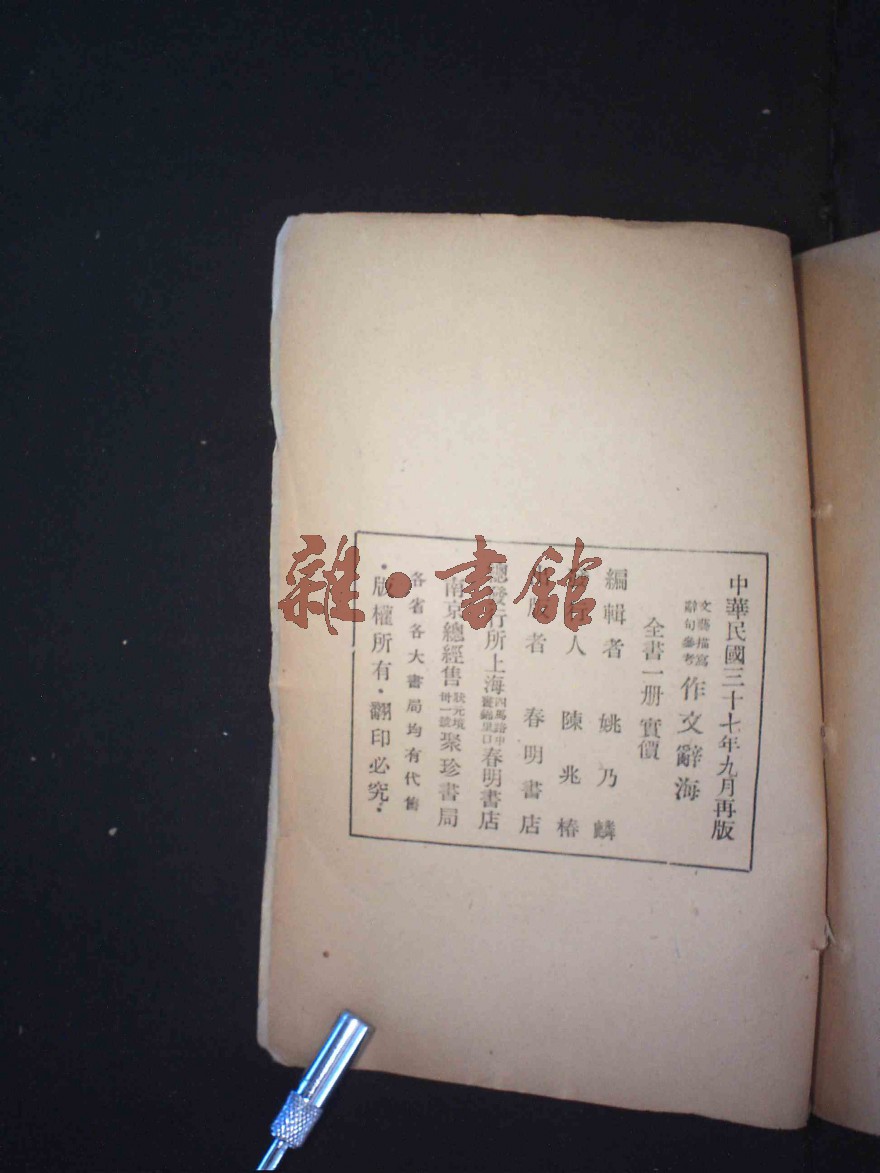 中華民國三十七年九月再版
文藝描寫
辭句參考
作文辭海
全書一册 實價
編輯者 姚乃麟
發行人 陳兆椿
出版者 春明書店
總發行所上海
四馬路中
晝錦里口
春明書店
南京總經售
狀元境
卅一號
聚珍書局
各省各大書局均有代售
·版權所有·翻印必究·
雜·書館